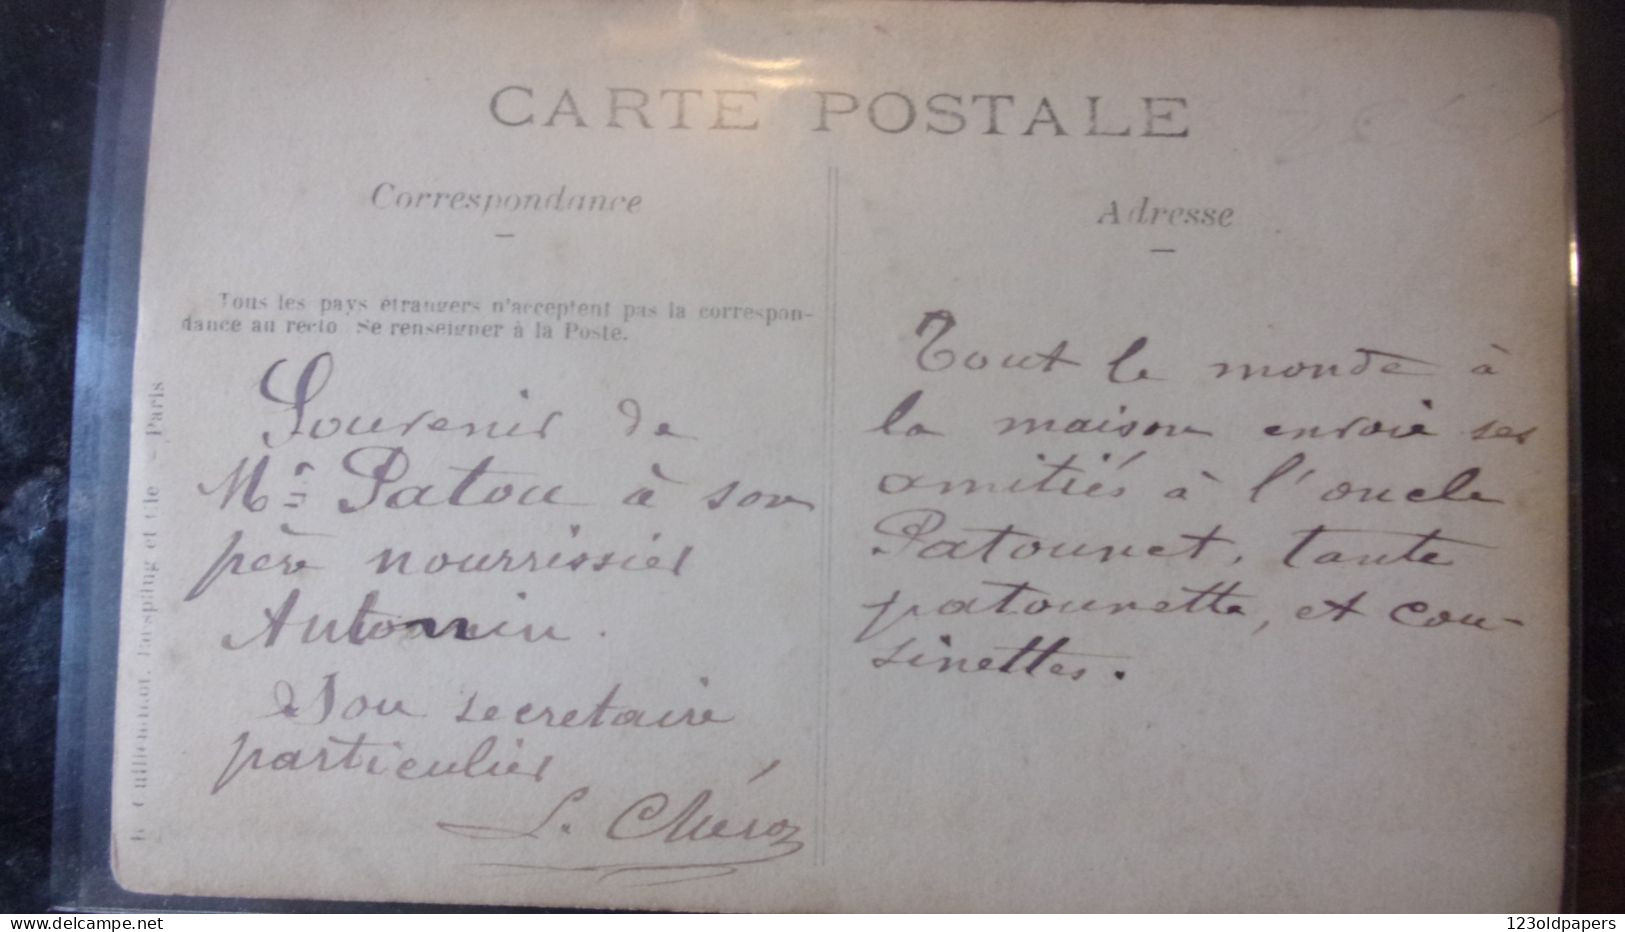 CARTE POSTALE
Correspondance
Tous les pays étrangers n'acceptent pas la correspon-
dance au recto Se renseigner à la Poste.
Souvenir de
Mr Patou à son
père nourrissier
Antonin.
Son secretaire
particulier
L. Chéroz
Adresse
Tout le monde à
la maison envoie ses
amitiés à l'oncle
Patounet, tante
patounette, et cou-
sinettes.
et Cie - Paris
123oldpapers